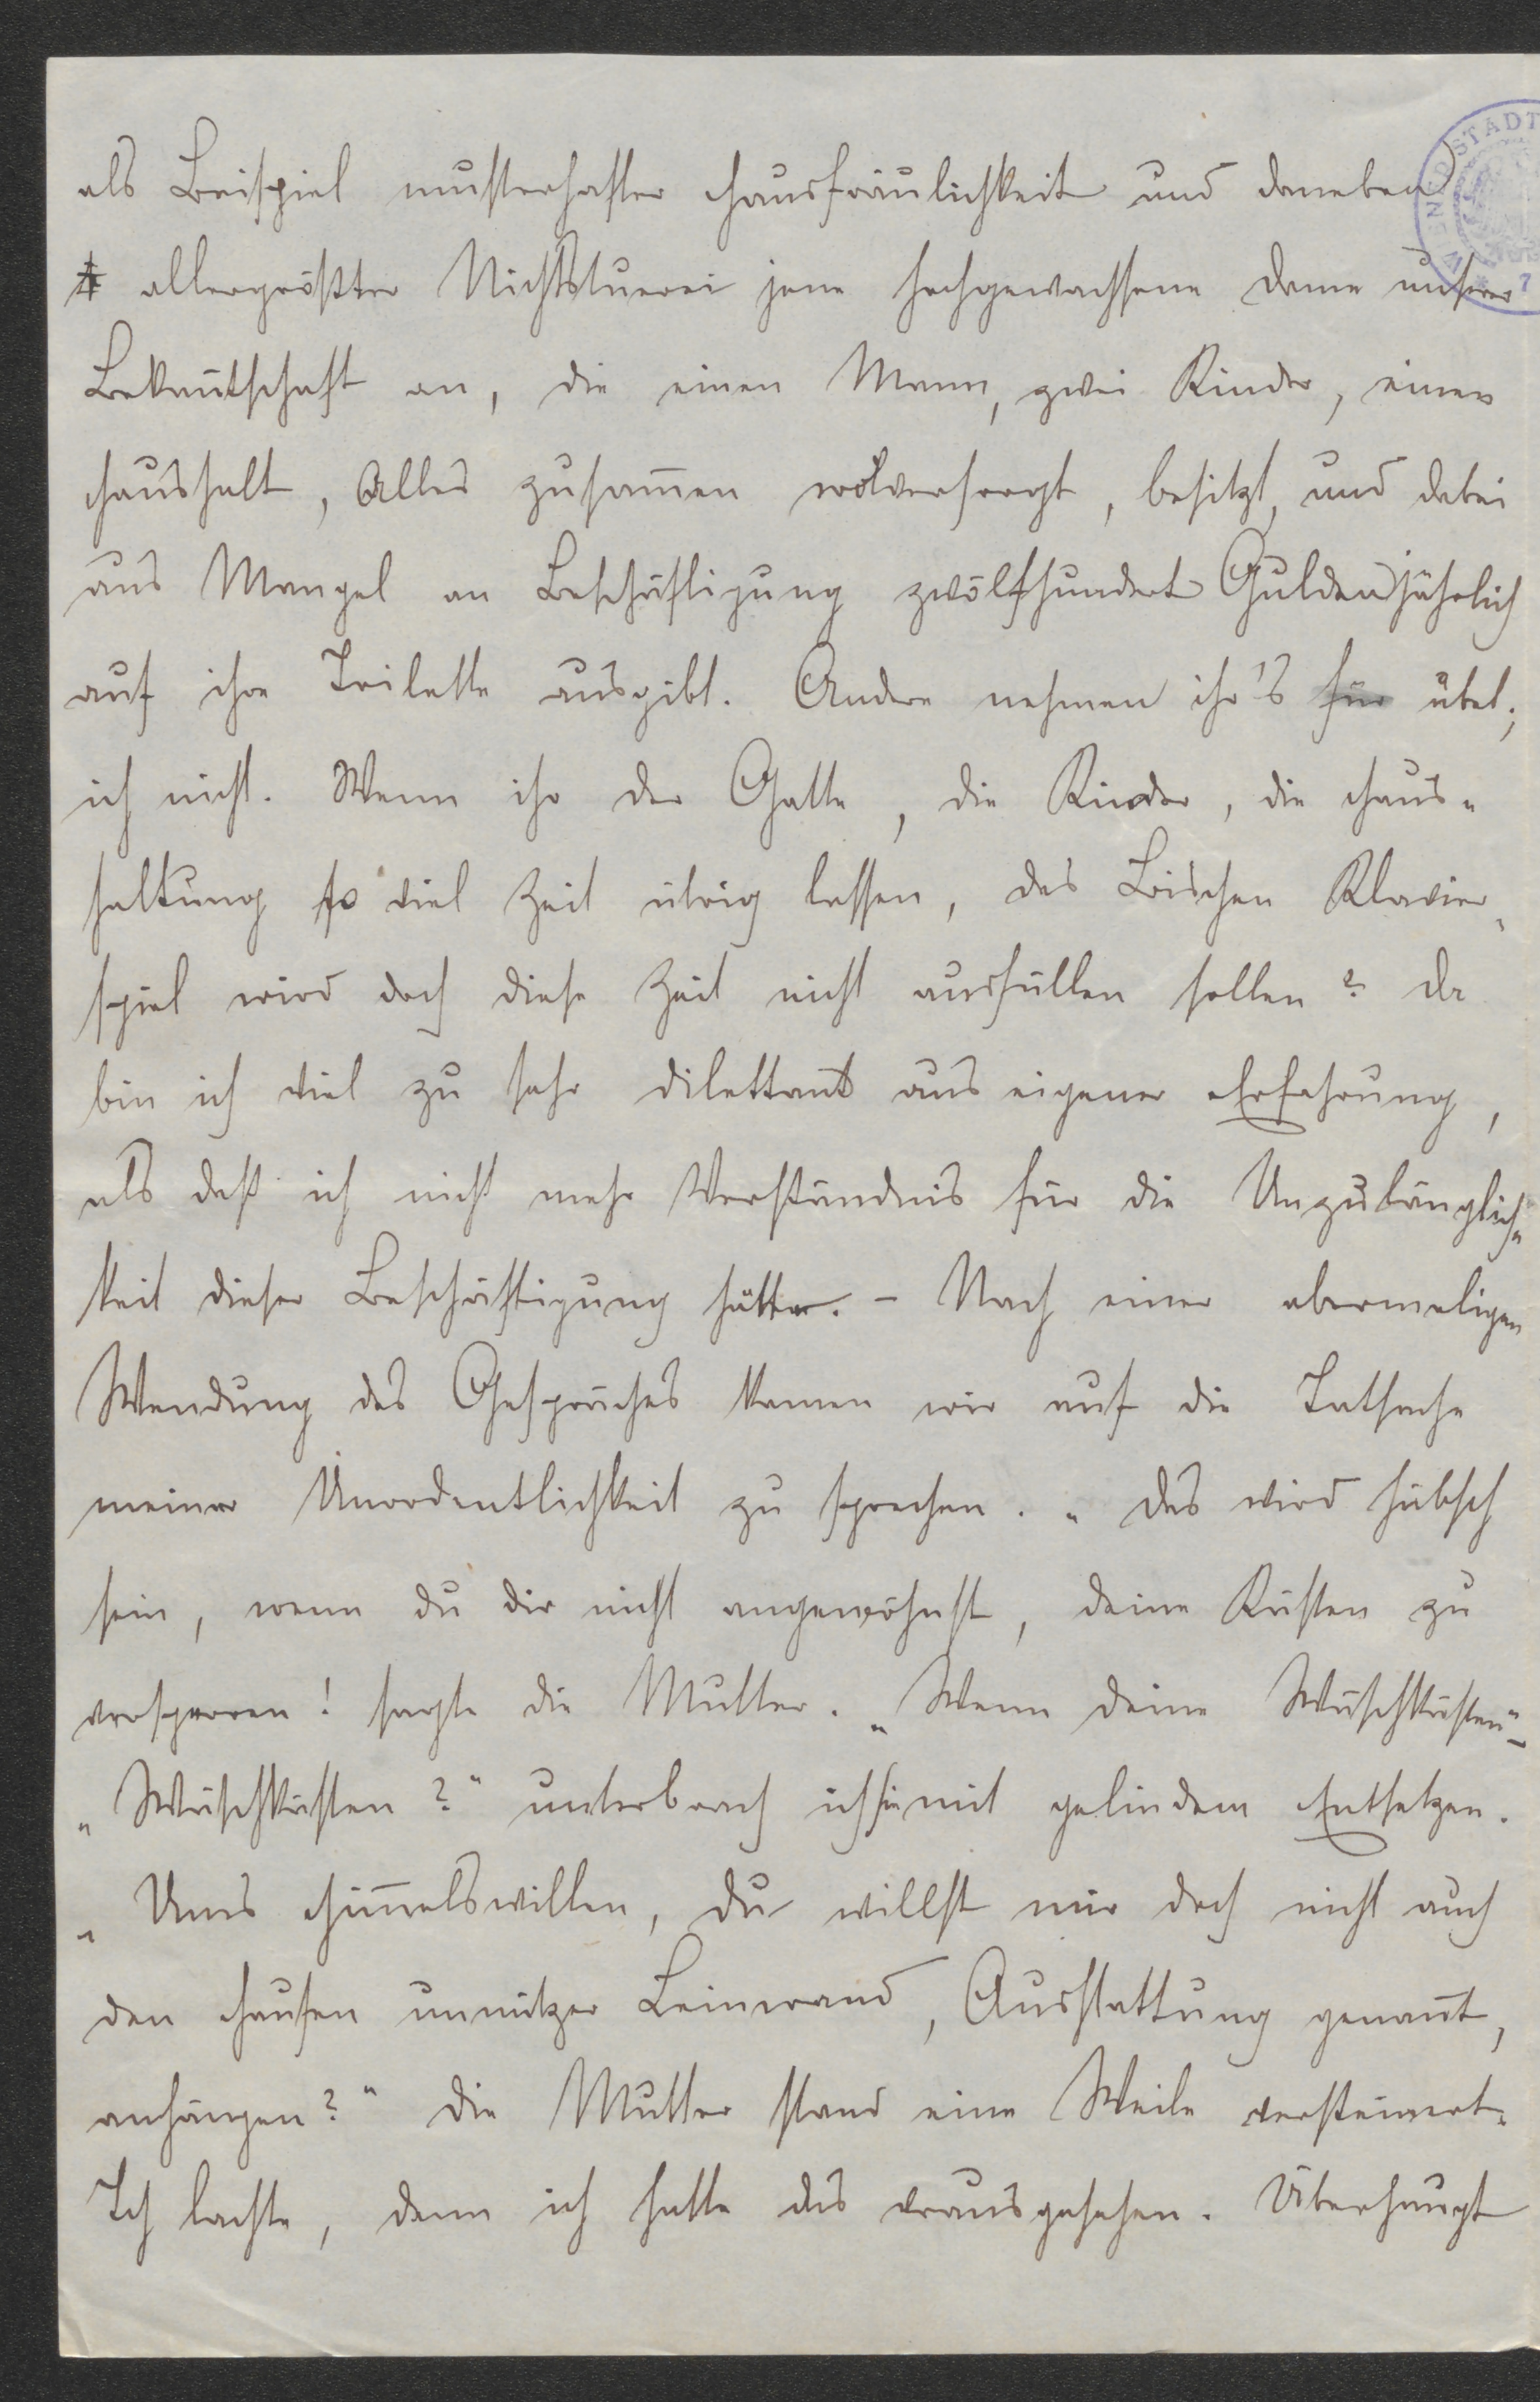 als Beispiel musterhafter Hausfräulichkeit und daneben
allergrößter Nichtstuerei jene hochgewachsene Dame unserer
Bekan̅tschaft an, die einen Mann, zwei Kinder, einen
Haushalt, Alles zusam̅en wolversorgt, besitzt, und dabei
aus Mangel an Beschäftigung zwölfhundert Gulden jährlich
auf ihre Toilette ausgibt. Andere nehmen ihr's für übel;
ich nicht. Wenn ihr der Gatte, die Kinder, die Haus-
haltung so viel Zeit übrig lassen, das Bischen Klavier-
spiel wird doch diese Zeit nicht ausfüllen sollen? Da
bin ich viel zu sehr Dilettant aus eigener Erfahrung,
als daß ich nicht mehr Verständnis für die Unzulänglich-
keit dieser Beschäftigung hätte. – Nach einer abermaligen
Wendung des Gespräches kamen wir auf die Tatsache
meiner Unordentlichkeit zu sprechen. „Das wird hübsch
sein, wenn du dir nicht angewöhnst, deine Kästen zu
versperren! sagte die Mutter. „Wenn deine Wäschkästen"–
„Wäschkästen?" unterbrach ich sie mit gelindem Entsetzen.
„Ums Him̅elswillen, du willst mir doch nicht auch
den Haufen unnützer Leinwand, Ausstattung genan̅t,
anhängen?" Die Mutter stand eine Weile versteinert.
Ich lachte, denn ich hatte das vorausgesehen. Überhaupt
STADT
7